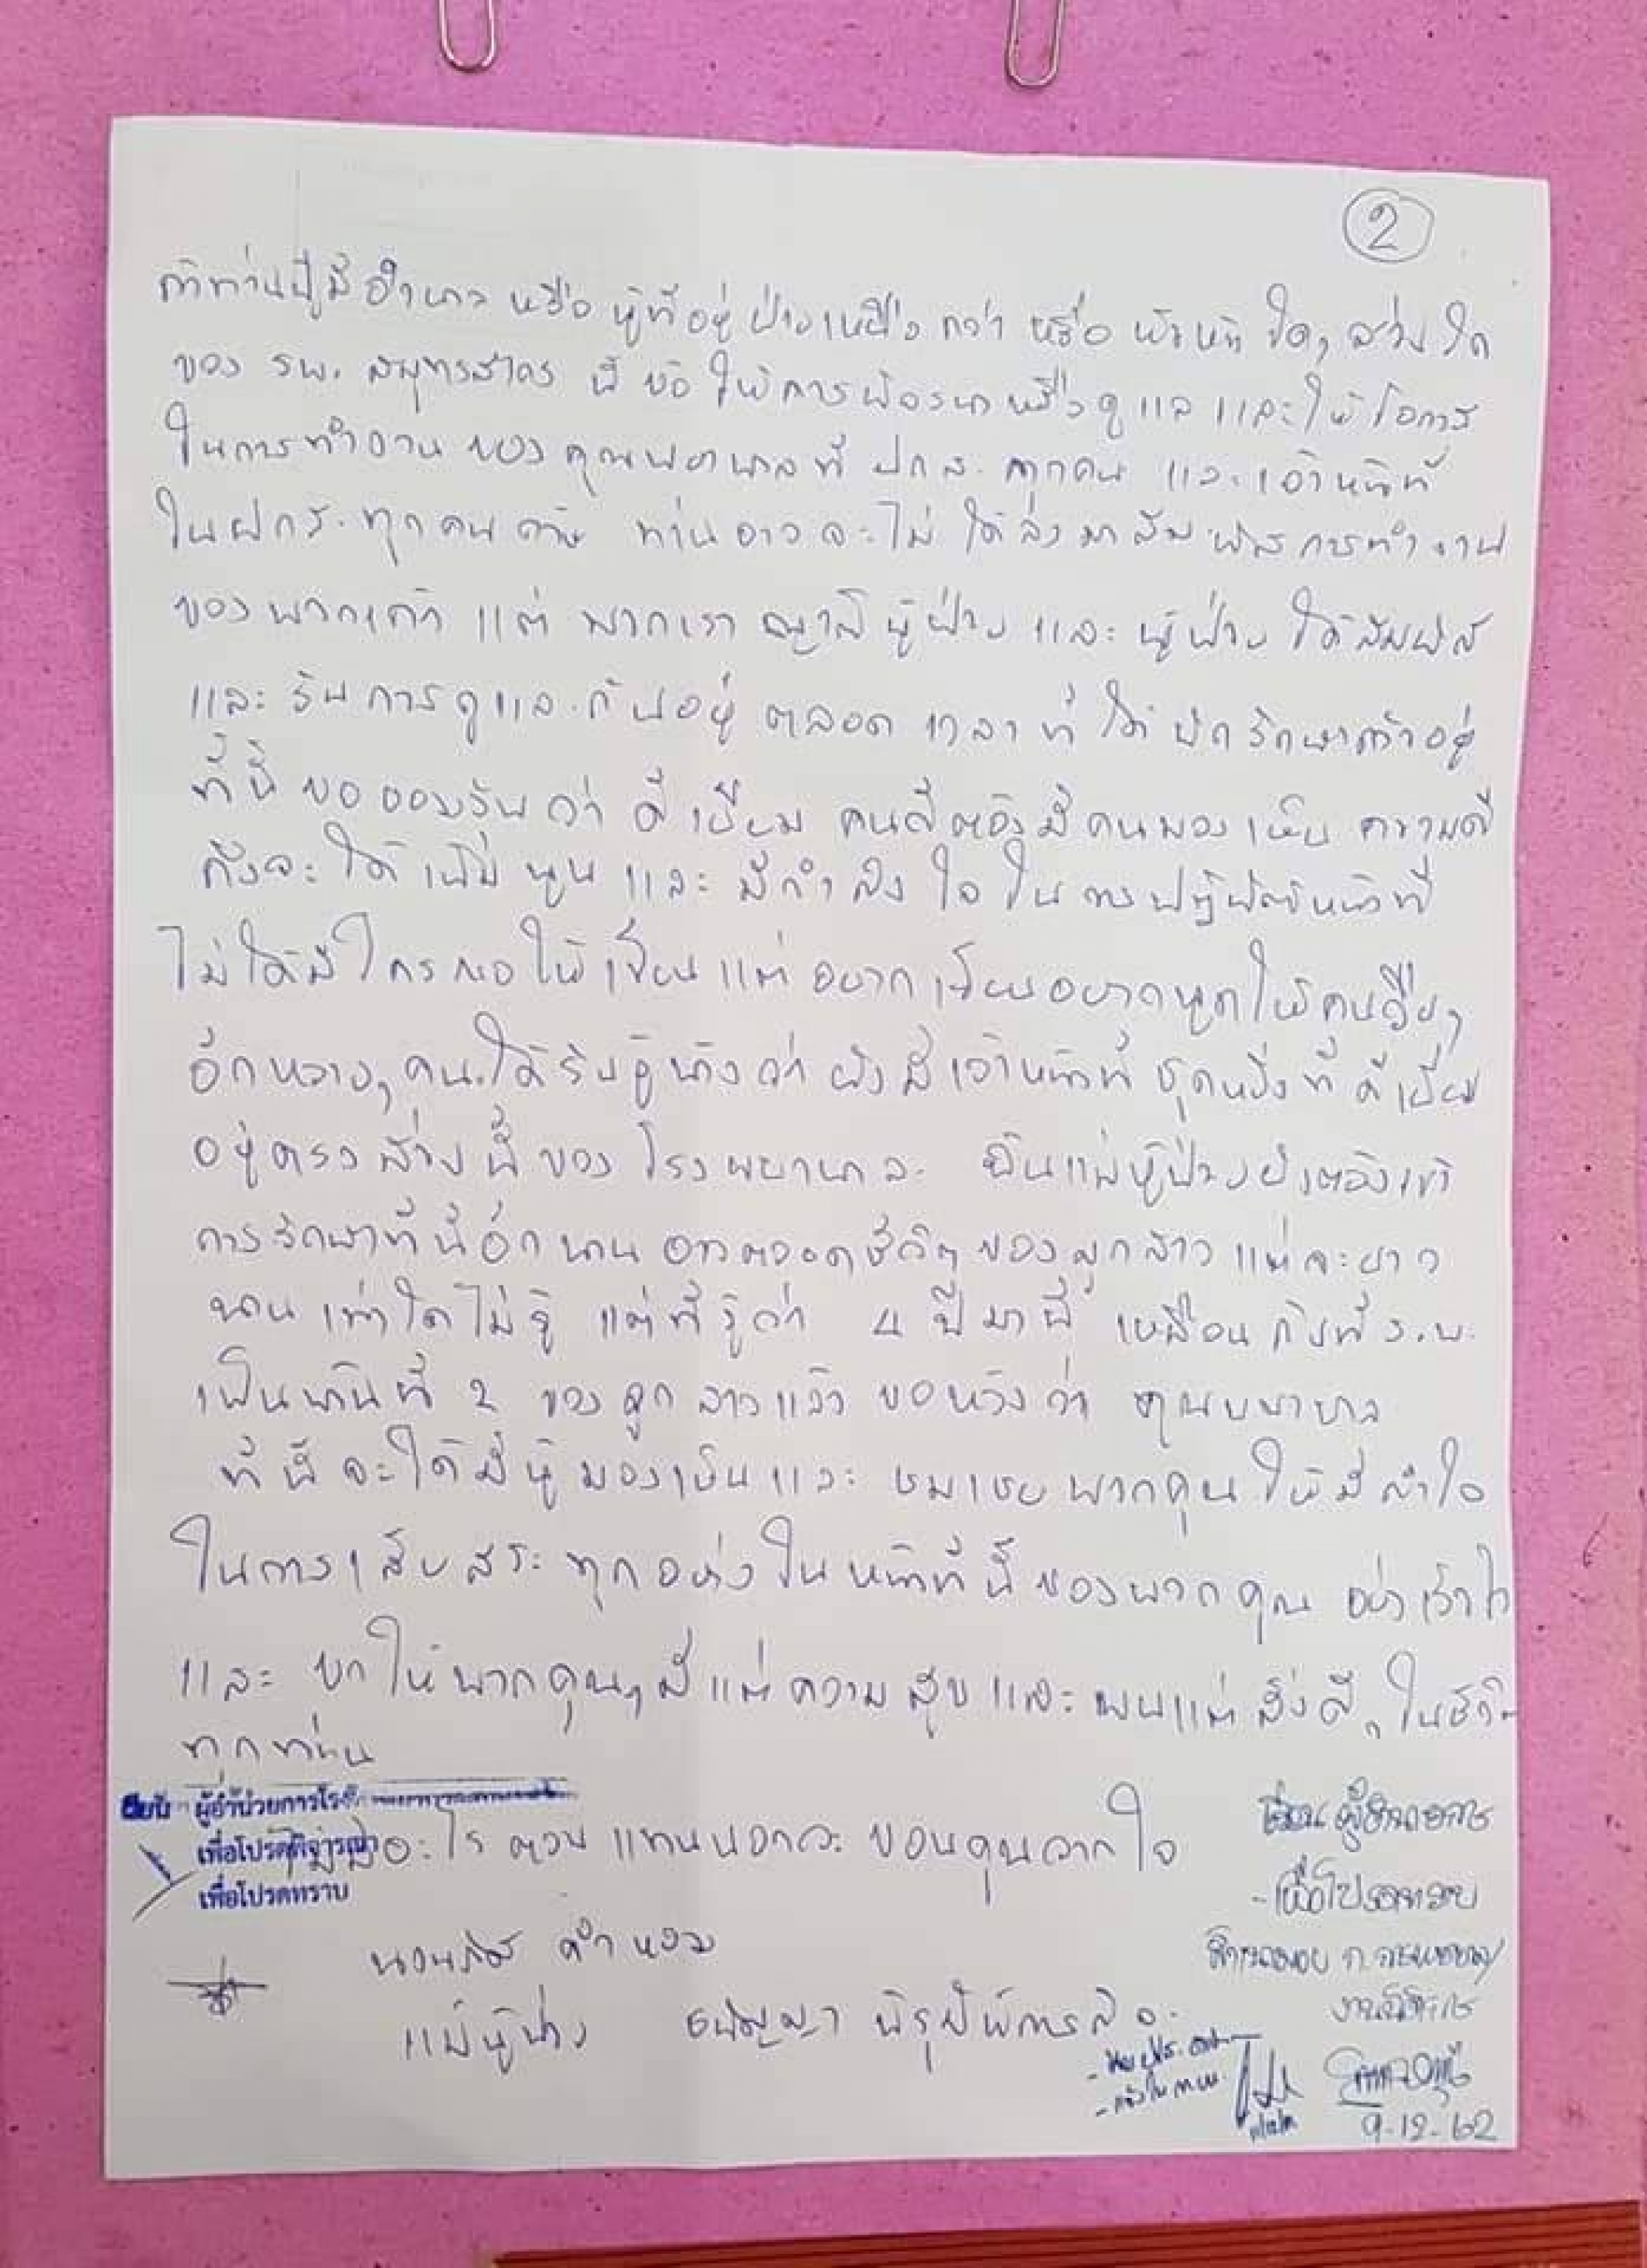 2
ถ้าท่านผู้มีอำนาจ หรือ ผู้ที่อยู่ฝ่ายเหนือกว่า หรือ หัวหน้าใดๆ ส่วนใด
ของ รพ. สมุทรสาคร นี้ ขอให้การพิจารณาหรือดูแล และให้โอกาส
ในการทำงาน ของคุณพยาบาลที่ ปกส. ทุกคน และเจ้าหน้าที่
ในปกส. ทุกคนด้วย ท่านอาจจะไม่ได้ลงมาสัมผัสการทำงาน
ของพวกเค้า แต่ พวกเราญาติผู้ป่วย และ ผู้ป่วย ได้สัมผัส
และ รับการดูแลกันอยู่ ตลอด เวลาที่ได้พักรักษาตัวอยู่
ที่นี่ ขอยอมรับว่า ดีเยี่ยม คนดีต้องมีคนมองเห็น ความดี
ถึงจะได้เพิ่มพูน และ มีกำลังใจในการปฏิบัติหน้าที่
ไม่ได้มีใครขอให้เขียน แต่ อยากเขียนอยากพูดให้คนอื่นๆ
อีกหลายๆ คนได้รับรู้บ้างว่า ยังมีเจ้าหน้าที่ ชุดหนึ่งที่ดีเยี่ยม
อยู่ตรงส่วนนี้ของ โรงพยาบาล ฉันแม่ผู้ป่วยยังต้องเข้า
การรักษาที่นี่อีกนาน อาจตลอดชีวิตของลูกสาว แต่จะยาว
นาน เท่าใดไม่รู้ แต่ที่รู้ว่า 4 ปีมานี้ เหมือนกับที่ ร.พ.
เป็นบ้านที่ 2 ของลูกสาวแล้ว ขอหวังว่า คุณพยาบาล
ที่นี่จะได้มีผู้มองเห็นและ ชมเชยพวกคุณ ให้มีกำลังใจ
ในการเสียสละ ทุกอย่างในหน้าที่นี้ของพวกคุณ อย่า
และ ขอให้พวกคุณๆ มีแต่ความสุข และ พบแต่สิ่งดีๆ ในชีวิต
ทุกท่าน
เรียน ผู้อำนวยการโรง
เพื่อโปรดพิจารณา
เพื่อโปรดทราบ
ไม่มีอะไรตอบแทนนอกจะ ขอบคุณจากใจ
เรียน ผู้อำนวยการ
- เพื่อโปรดทราบ
แม่ผู้ป่วย
9-12-62